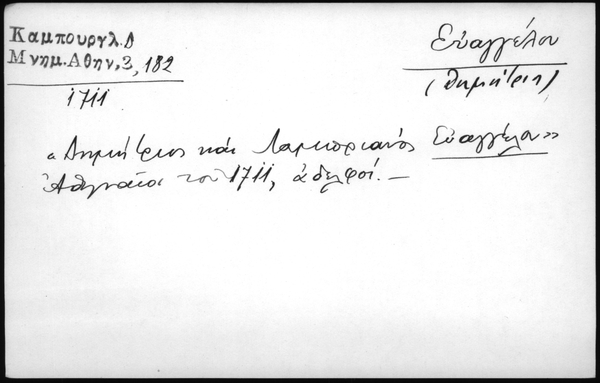 Καμπουργλ.Δ
Μνημ.Αθην,3,182
1711
Εὐαγγέλου
(Δημήτριος)
«Δημήτριος καὶ Λαμπριανός Εὐαγγέλου»
Ἀθηναῖοι τοῦ 1711, ἀδελφοί.—